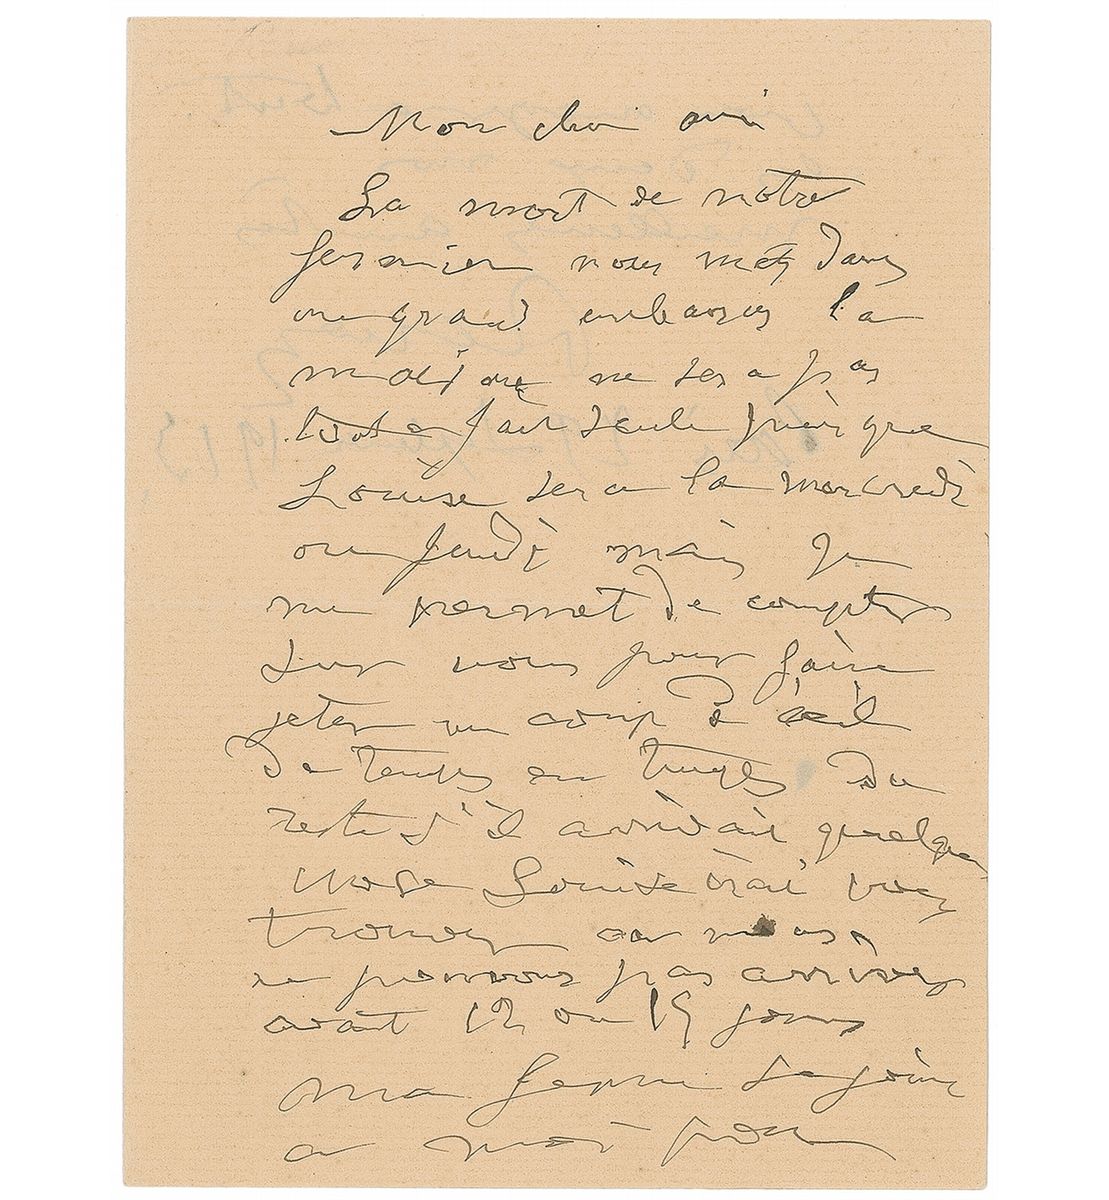 Mon cher ami
La mort de notre
fermier nous met dans
un grand embarras la
maison ne sera pas
tout a fait seule puisque
Louise sera la mercredi
ou jeudi mais je
me permet de compter
sur vous pour faire
jeter un coup d'œil
de temps en temps Du
reste s'il arrivait quelque
chose Louise irai vous
trouver car nous
ne pouvons pas arriver
avant 12 ou 15 jours
ma femme se joint
a moi pour